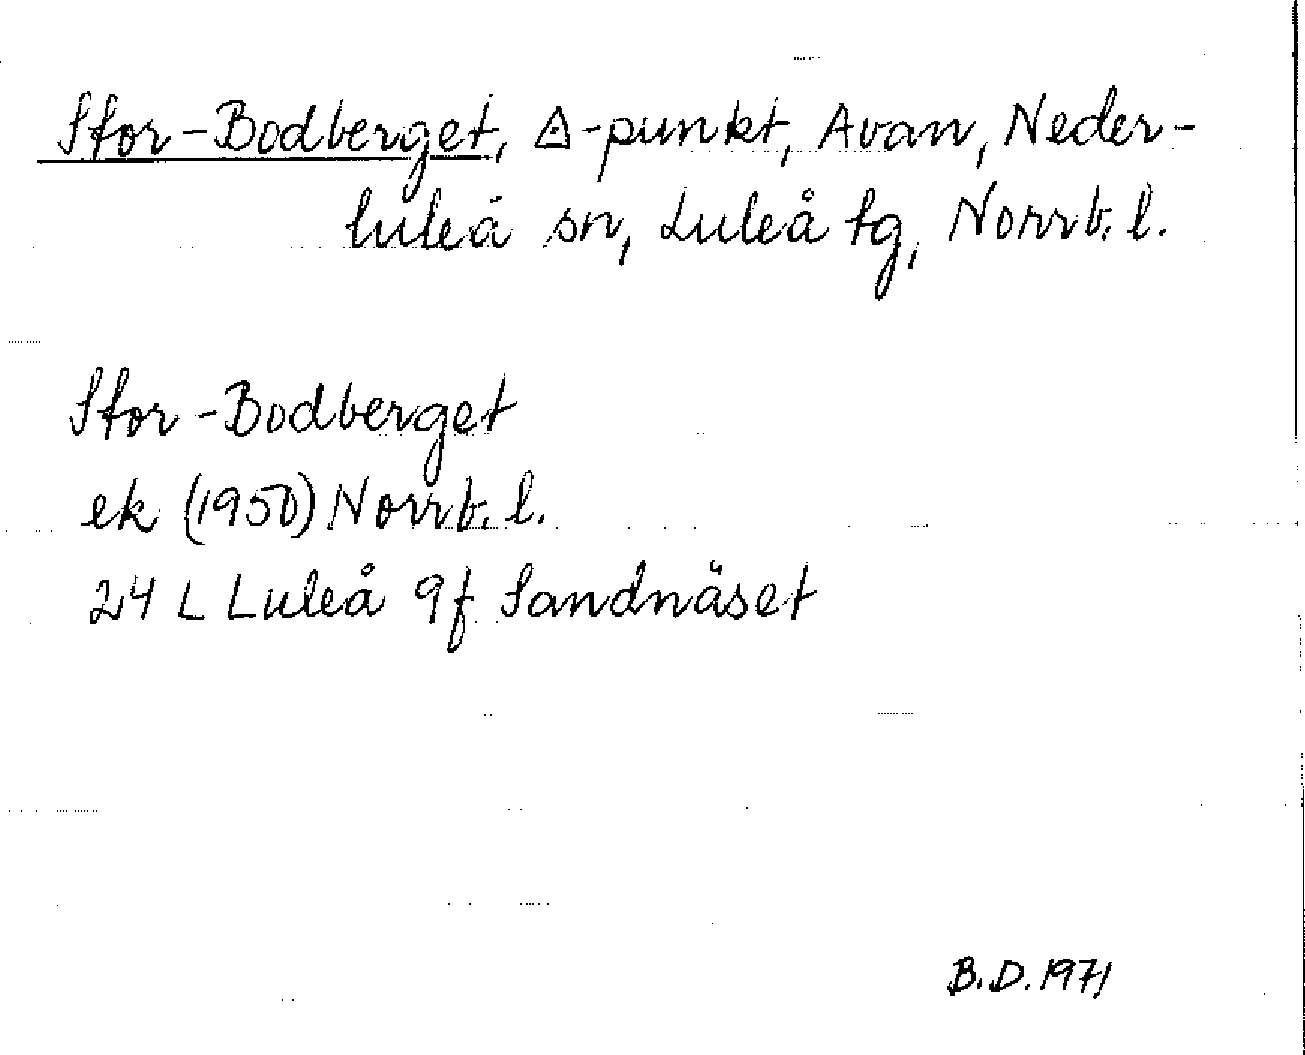 Stor-Bodberget, ◬-punkt, Avan, Neder-
luleå sn, Luleå tg, Norrb. l.
Stor-Bodberget
ek (1950) Norrb. l.
24 L Luleå 9f Sandnäset
B.D. 1971